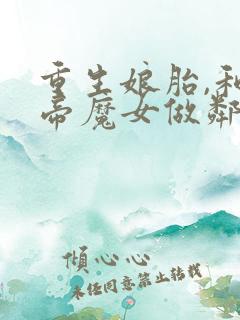 重生娘胎,和
帝魔女做鄰
傾心心
未经同意禁止转载